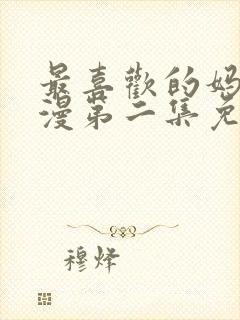 最喜歡的媽
漫第二集免
穆烽